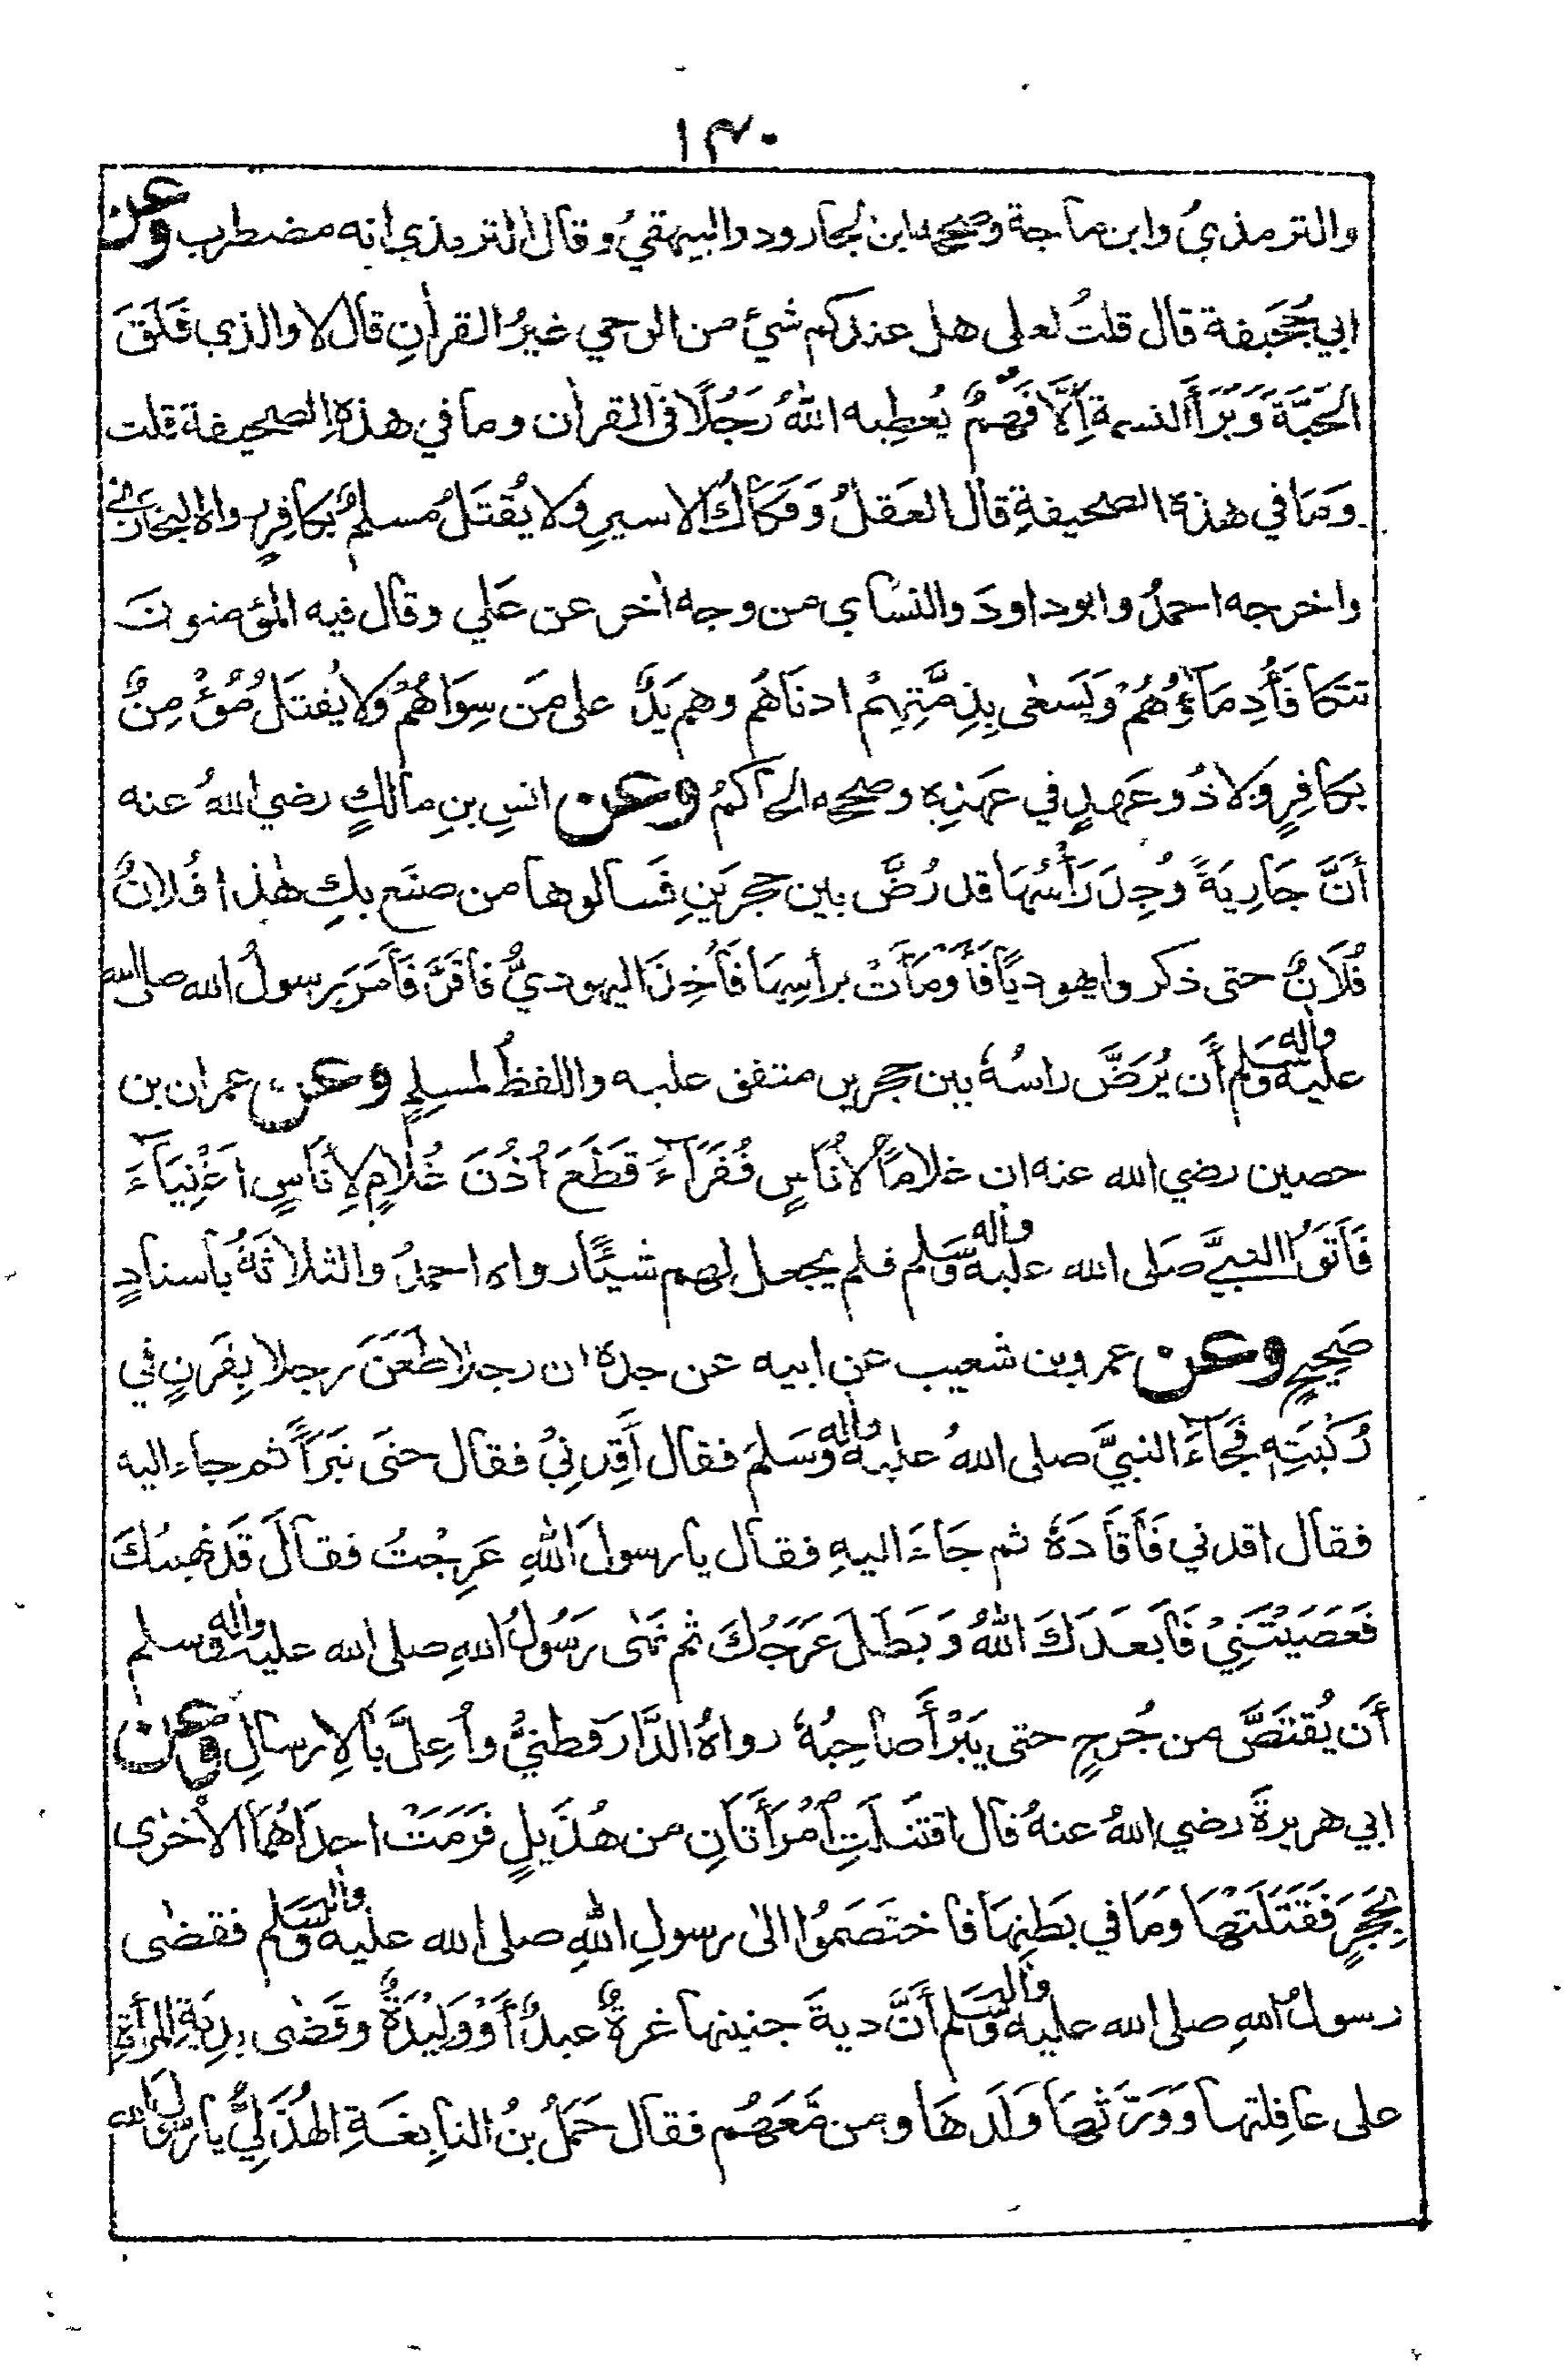 ١٣٠
والترمذيُ وابن ماجة وصححه ابن الجارود والبيهقيُ وقال الترمذي انه مضطرب وعن
ابي جُحَيفة قال قلتُ لعلى هل عندكم شيٌ من الوحي غيرُ القراٰنِ قال لا والذي فَلَقَ
الحَبَّةَ وَبَرَأَ النسمة اِلَّا فَهمٌ يُعطِيه اللهُ رَجُلًا فى القراٰن وما في هذهِ الصحيفة قلت
وَمَا في هذه الصحيفةِ قال العَقلُ وَفَكَاكُ الاسيرِ ولا يُقتَلُ مُسلمٌ بكافِرٍ رواه البخاريُّ
واخرجه احمدُ وابو داودَ والنسَاي من وجه اٰخر عن عَلي وقال فيه المؤمنونَ
تتكافَأُ دِمَاؤُهُمْ وَيَسعٰى بِذِمَّتِهِمْ ادنَاهُم وهم يَدٌ على مَن سِوَاهُمْ ولا يُقتَلُ مُؤْمِنٌ
بكافِرٍ وَلا ذُو عَهدٍ في عَهدِه وصححه الحاكمُ وعن انسِ بنِ مالكٍ رضي اللهُ عنه
أنَّ جَارِيَةً وُجِدَ رَأسُهَا قد رُضَّ بين حجرَينِ فَسالوها من صنَع بكِ هٰذا فُلانٌ
فُلَانٌ حتى ذكروا يهوديًا فَأَوْمَأَتْ برأسِهَا فَاُخِذَ اليهوديُّ فاقَرَّ فَأَمَرَ رسولُ الله صلى الله
عليه واٰله وَسَلم أَن يُرَضَّ راسُهٗ بين حجرين متفق عليه واللفظُ لمسلمٍ وعن عمران بن
حصين رضي الله عنه ان غلامًا لاُنَاسٍ فُقَرَآءَ قطَعَ اُذُنَ غُلامٍ لِاُنَاسٍ اغْنِيَآءَ
فَاَتَوُا النبيَّ صَلى الله عليه واٰله وَسَلم فلم يجعل لهم شيئًا رواه احمدُ والثلاثَةُ باسنادٍ
صَحِيحٍ وعن عمرو بن شعيب عن ابيه عن جده ان رجلا طَعَنَ رجلا بِقَرنٍ في
رُكْبَتِهٖ فَجَآءَ النبيَّ صلى اللهُ عليه واٰله وَسَلمَ فقال أَقِدنِيْ فقال حتى تَبَرَأَ ثم جاء اليه
فقال اقدني فَأَقَادَهٗ ثم جَاءَ اليهِ فقال يا رسولَ اللهِ عَرِجْتُ فقالَ قَد نَهيتُكَ
فَعَصَيْتَنِيْ فَأَبعَدَكَ اللهُ وَبَطَلَ عَرَجُكَ ثم نَهٰى رَسُولُ اللهِ صلى الله عليه واٰله وسلم
أَن يُقتَصَّ من جُرحٍ حتى يَبْرَأَ صاحِبُهٗ رواهُ الدَّارَقطنيُّ واُعِلَّ بالاِرسالِ وعن
ابي هريرةَ رضي اللهُ عنهُ قال اقتتَلَتِ اُمْرَأَتَانِ من هُذَيلٍ فَرَمَتْ احدَاهُمَا الاُخرٰى
بِحَجَرٍ فَقَتَلَتْهَا وَمَا في بَطنِهَا فاختَصَمُوْا الىٰ رسولِ اللهِ صلى الله عليه واٰله وسلم فقضٰى
رسولُ اللهِ صلى الله عليه واٰله وسلم أَنَّ ديةَ جنينها غرةٌ عبدٌ أَوْ وَلِيْدَةٌ وقَضٰى بديةِ المرأةِ
على عاقِلتها وَوَرّثَهَا وَلَدَهَا ومن مَّعَهُم فقال حَمَلُ بنُ النابِغَةِ الهُذَلِيُّ يا رسول الله